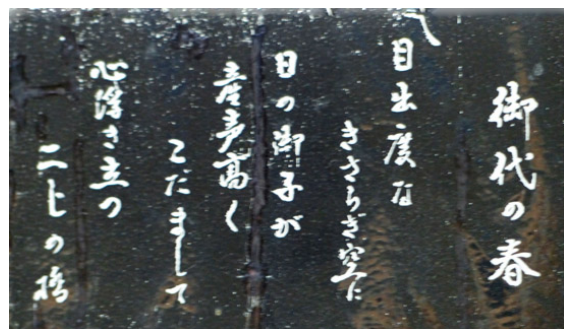 御代の春
目出度な
きさらぎ空に
日の御子が
産声高く
こだまして
心浮き立つ
二しの橋